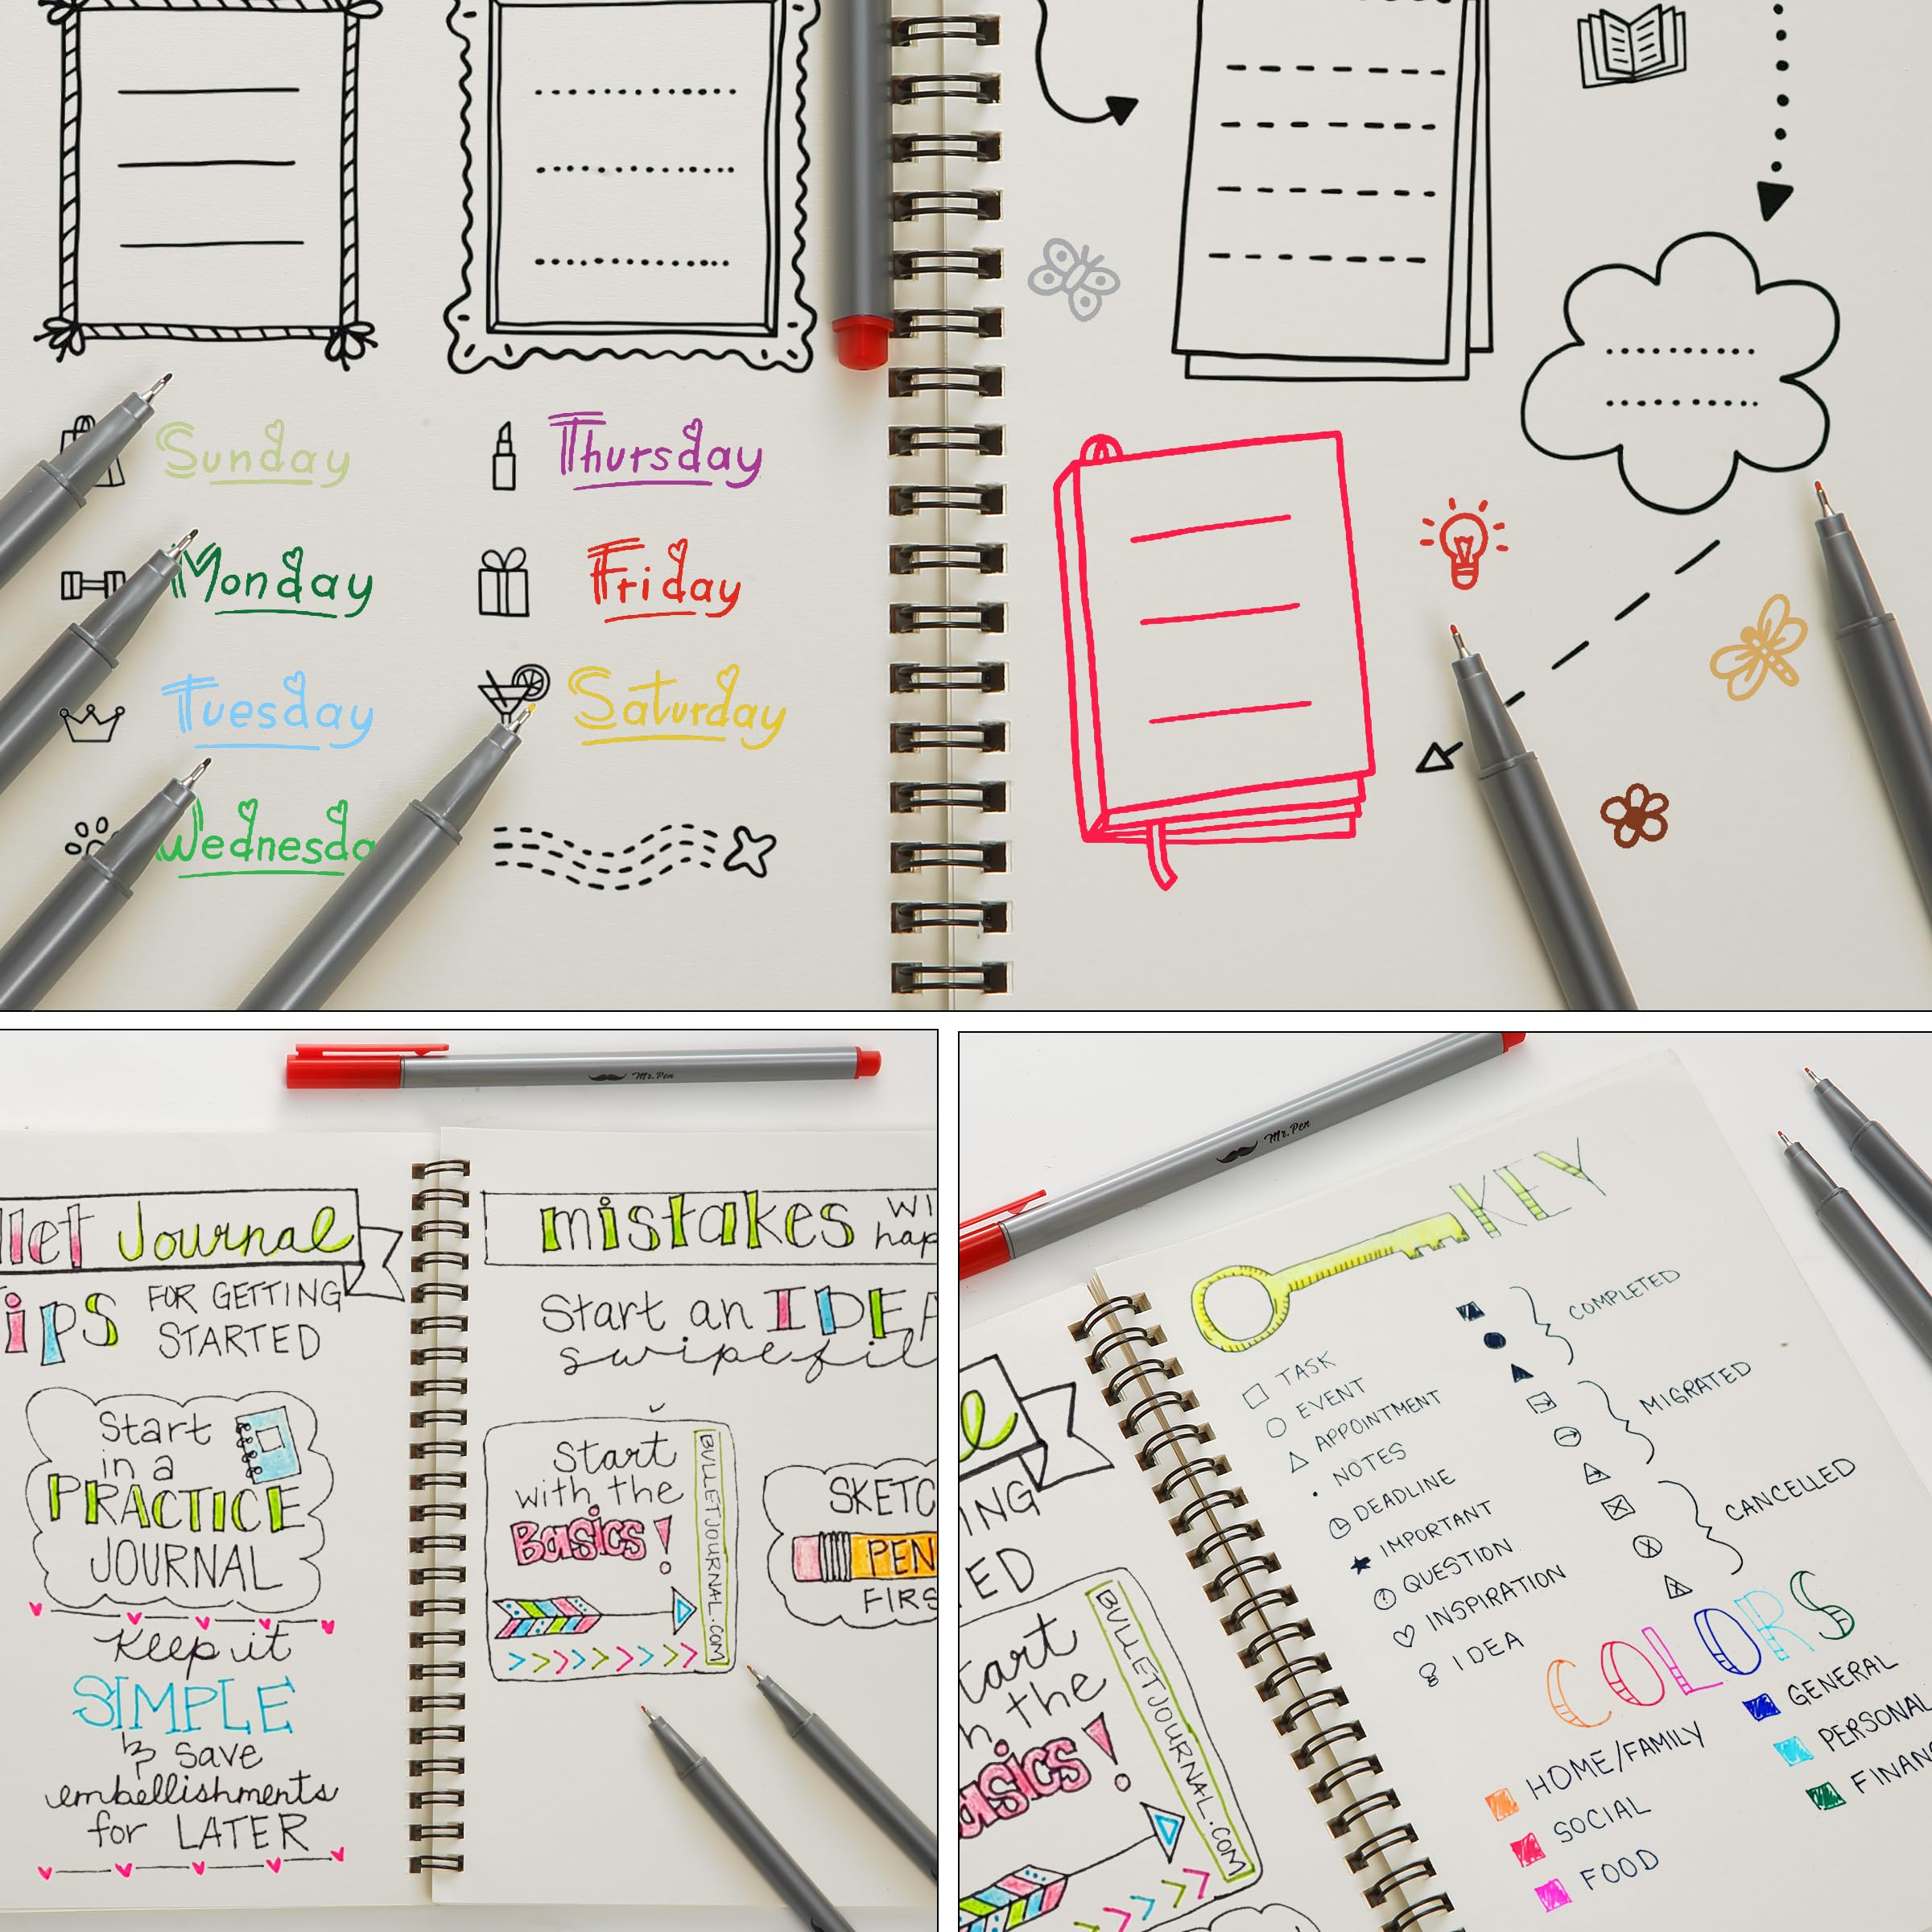 Sunday
Monday
Tuesday
Wednesda
Thursday
Friday
Saturday
Mr. Pen
Journal
Tips FOR GETTING
STARTED
Start
in a
PRACTICE
JOURNAL
Keep it
SIMPLE
& save
embellishments
for LATER
mistakes
Start an IDEA
swipe fil
Start
with the
Basics!
BULLETJOURNAL.COM
SKETC
PEN
FIRS
Mr. Pen
KEY
TASK
EVENT
APPOINTMENT
NOTES
DEADLINE
IMPORTANT
QUESTION
INSPIRATION
IDEA
COMPLETED
MIGRATED
CANCELLED
COLORS
HOME/FAMILY
SOCIAL
FOOD
GENERAL
PERSONAL
FINANC
ING
ED
tart
h the
asics!
BULLETJOURNAL.COM